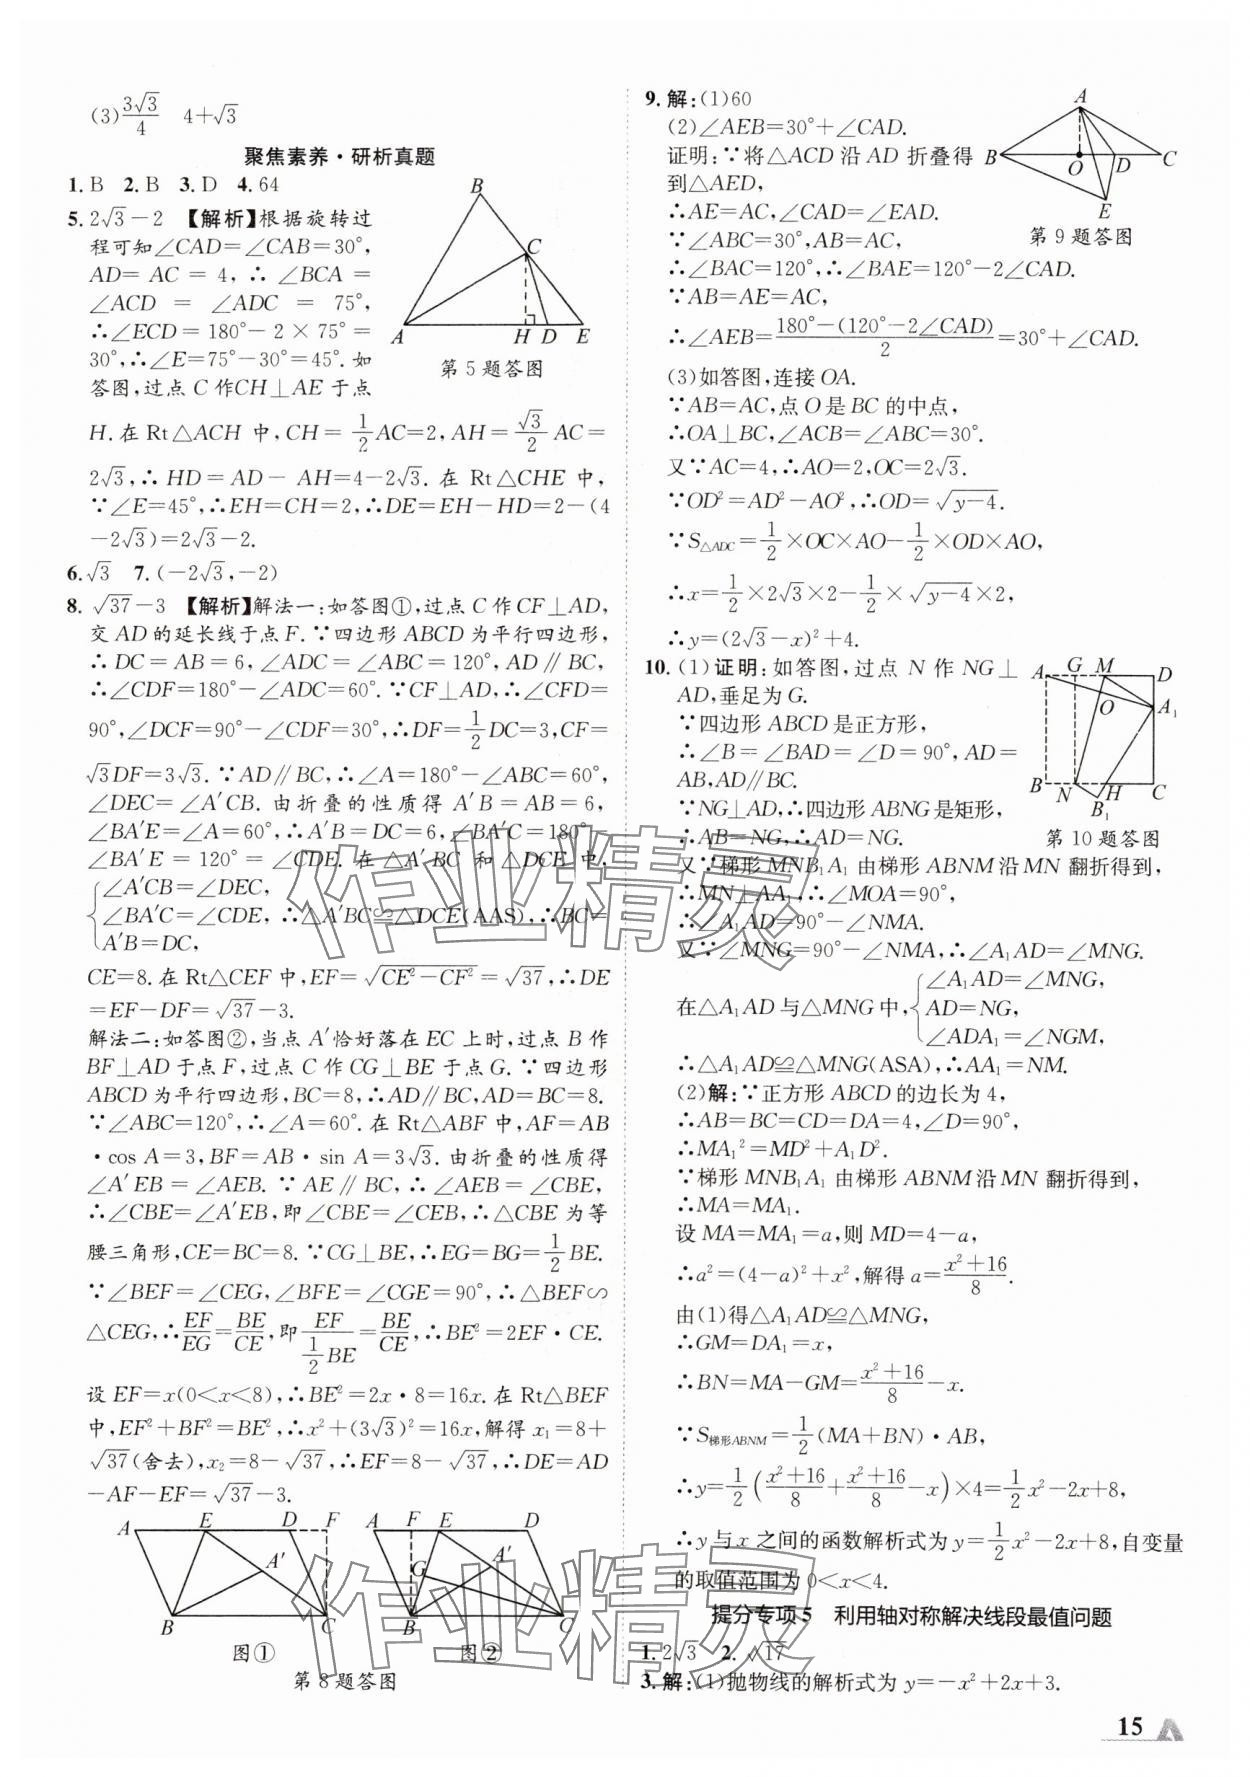 (3)3√3/4　4+√3
聚焦素养·研析真题
1.B　2.B　3.D　4.64
5.2√3－2　【解析】根据旋转过
程可知∠CAD=∠CAB=30°,
AD=AC=4,∴∠BCA=
∠ACD=∠ADC=75°,
∴∠ECD=180°－2×75°=
30°,∴∠E=75°－30°=45°.如
答图,过点C作CH⊥AE于点
B
C
A
H
D
E
第5题答图
H.在Rt△ACH中,CH=1/2AC=2,AH=√3/2AC=
2√3,∴HD=AD－AH=4－2√3.在Rt△CHE中,
∵∠E=45°,∴EH=CH=2,∴DE=EH－HD=2－(4
－2√3)=2√3－2.
6.√3　7.(－2√3,－2)
8.√37－3　【解析】解法一:如答图①,过点C作CF⊥AD,
交AD的延长线于点F.∵四边形ABCD为平行四边形,
∴DC=AB=6,∠ADC=∠ABC=120°,AD∥BC,
∴∠CDF=180°－∠ADC=60°.∵CF⊥AD,∴∠CFD=
90°,∠DCF=90°－∠CDF=30°,∴DF=1/2DC=3,CF=
√3DF=3√3.∵AD∥BC,∴∠A=180°－∠ABC=60°,
∠DEC=∠A′CB.由折叠的性质得A′B=AB=6,
∠BA′E=∠A=60°,∴A′B=DC=6,∠BA′C=180°－
∠BA′E=120°=∠CDE.在△A′BC和△DCE中,
∠A′CB=∠DEC,
∠BA′C=∠CDE,∴△A′BC≌△DCE(AAS),∴BC=
A′B=DC,
CE=8.在Rt△CEF中,EF=√(CE²－CF²)=√37,∴DE
=EF－DF=√37－3.
解法二:如答图②,当点A′恰好落在EC上时,过点B作
BF⊥AD于点F,过点C作CG⊥BE于点G.∵四边形
ABCD为平行四边形,BC=8,∴AD∥BC,AD=BC=8.
∵∠ABC=120°,∴∠A=60°.在Rt△ABF中,AF=AB
·cos A=3,BF=AB·sin A=3√3.由折叠的性质得
∠A′EB=∠AEB.∵AE∥BC,∴∠AEB=∠CBE,
∴∠CBE=∠A′EB,即∠CBE=∠CEB,∴△CBE为等
腰三角形,CE=BC=8.∵CG⊥BE,∴EG=BG=1/2BE.
∵∠BEF=∠CEG,∠BFE=∠CGE=90°,∴△BEF∽
△CEG,∴EF/EG=BE/CE,即EF/(1/2BE)=BE/CE,∴BE²=2EF·CE.
设EF=x(0<x<8),∴BE²=2x·8=16x.在Rt△BEF
中,EF²+BF²=BE²,∴x²+(3√3)²=16x,解得x₁=8+
√37(舍去),x₂=8－√37,∴EF=8－√37,∴DE=AD
－AF－EF=√37－3.
A E D F
A′
B C
图①
A F E D
G A′
B C
图②
第8题答图
9.解:(1)60
(2)∠AEB=30°+∠CAD.
证明:∵将△ACD沿AD折叠得
到△AED,
∴AE=AC,∠CAD=∠EAD.
∵∠ABC=30°,AB=AC,
∴∠BAC=120°,∴∠BAE=120°－2∠CAD.
A
B O D C
E
第9题答图
∵AB=AE=AC,
∴∠AEB=(180°－(120°－2∠CAD))/2=30°+∠CAD.
(3)如答图,连接OA.
∵AB=AC,点O是BC的中点,
∴OA⊥BC,∠ACB=∠ABC=30°.
又∵AC=4,∴AO=2,OC=2√3.
∵OD²=AD²－AO²,∴OD=√(y－4).
∵S△ADC=1/2×OC×AO－1/2×OD×AO,
∴x=1/2×2√3×2－1/2×√(y－4)×2,
∴y=(2√3－x)²+4.
10.(1)证明:如答图,过点N作NG⊥
AD,垂足为G.
∵四边形ABCD是正方形,
∴∠B=∠BAD=∠D=90°,AD=
AB,AD∥BC.
∵NG⊥AD,∴四边形ABNG是矩形,
∴AB=NG,∴AD=NG.
A G M D
O A₁
B N H C
B₁
第10题答图
又∵梯形MNB₁A₁由梯形ABNM沿MN翻折得到,
∴MN⊥AA₁,∴∠MOA=90°,
∴∠A₁AD=90°－∠NMA.
又∵∠MNG=90°－∠NMA,∴∠A₁AD=∠MNG.
在△A₁AD与△MNG中,
∠A₁AD=∠MNG,
AD=NG,
∠ADA₁=∠NGM,
∴△A₁AD≌△MNG(ASA),∴AA₁=NM.
(2)解:∵正方形ABCD的边长为4,
∴AB=BC=CD=DA=4,∠D=90°,
∴MA₁²=MD²+A₁D².
∵梯形MNB₁A₁由梯形ABNM沿MN翻折得到,
∴MA=MA₁.
设MA=MA₁=a,则MD=4－a,
∴a²=(4－a)²+x²,解得a=(x²+16)/8.
由(1)得△A₁AD≌△MNG,
∴GM=DA₁=x,
∴BN=MA－GM=(x²+16)/8－x.
∵S梯形ABNM=1/2(MA+BN)·AB,
∴y=1/2((x²+16)/8+(x²+16)/8－x)×4=1/2x²－2x+8,
∴y与x之间的函数解析式为y=1/2x²－2x+8,自变量
的取值范围为0<x<4.
提分专项5　利用轴对称解决线段最值问题
1.2√3　2.√17
3.解:(1)抛物线的解析式为y=－x²+2x+3.
15
作业精灵
作业精灵